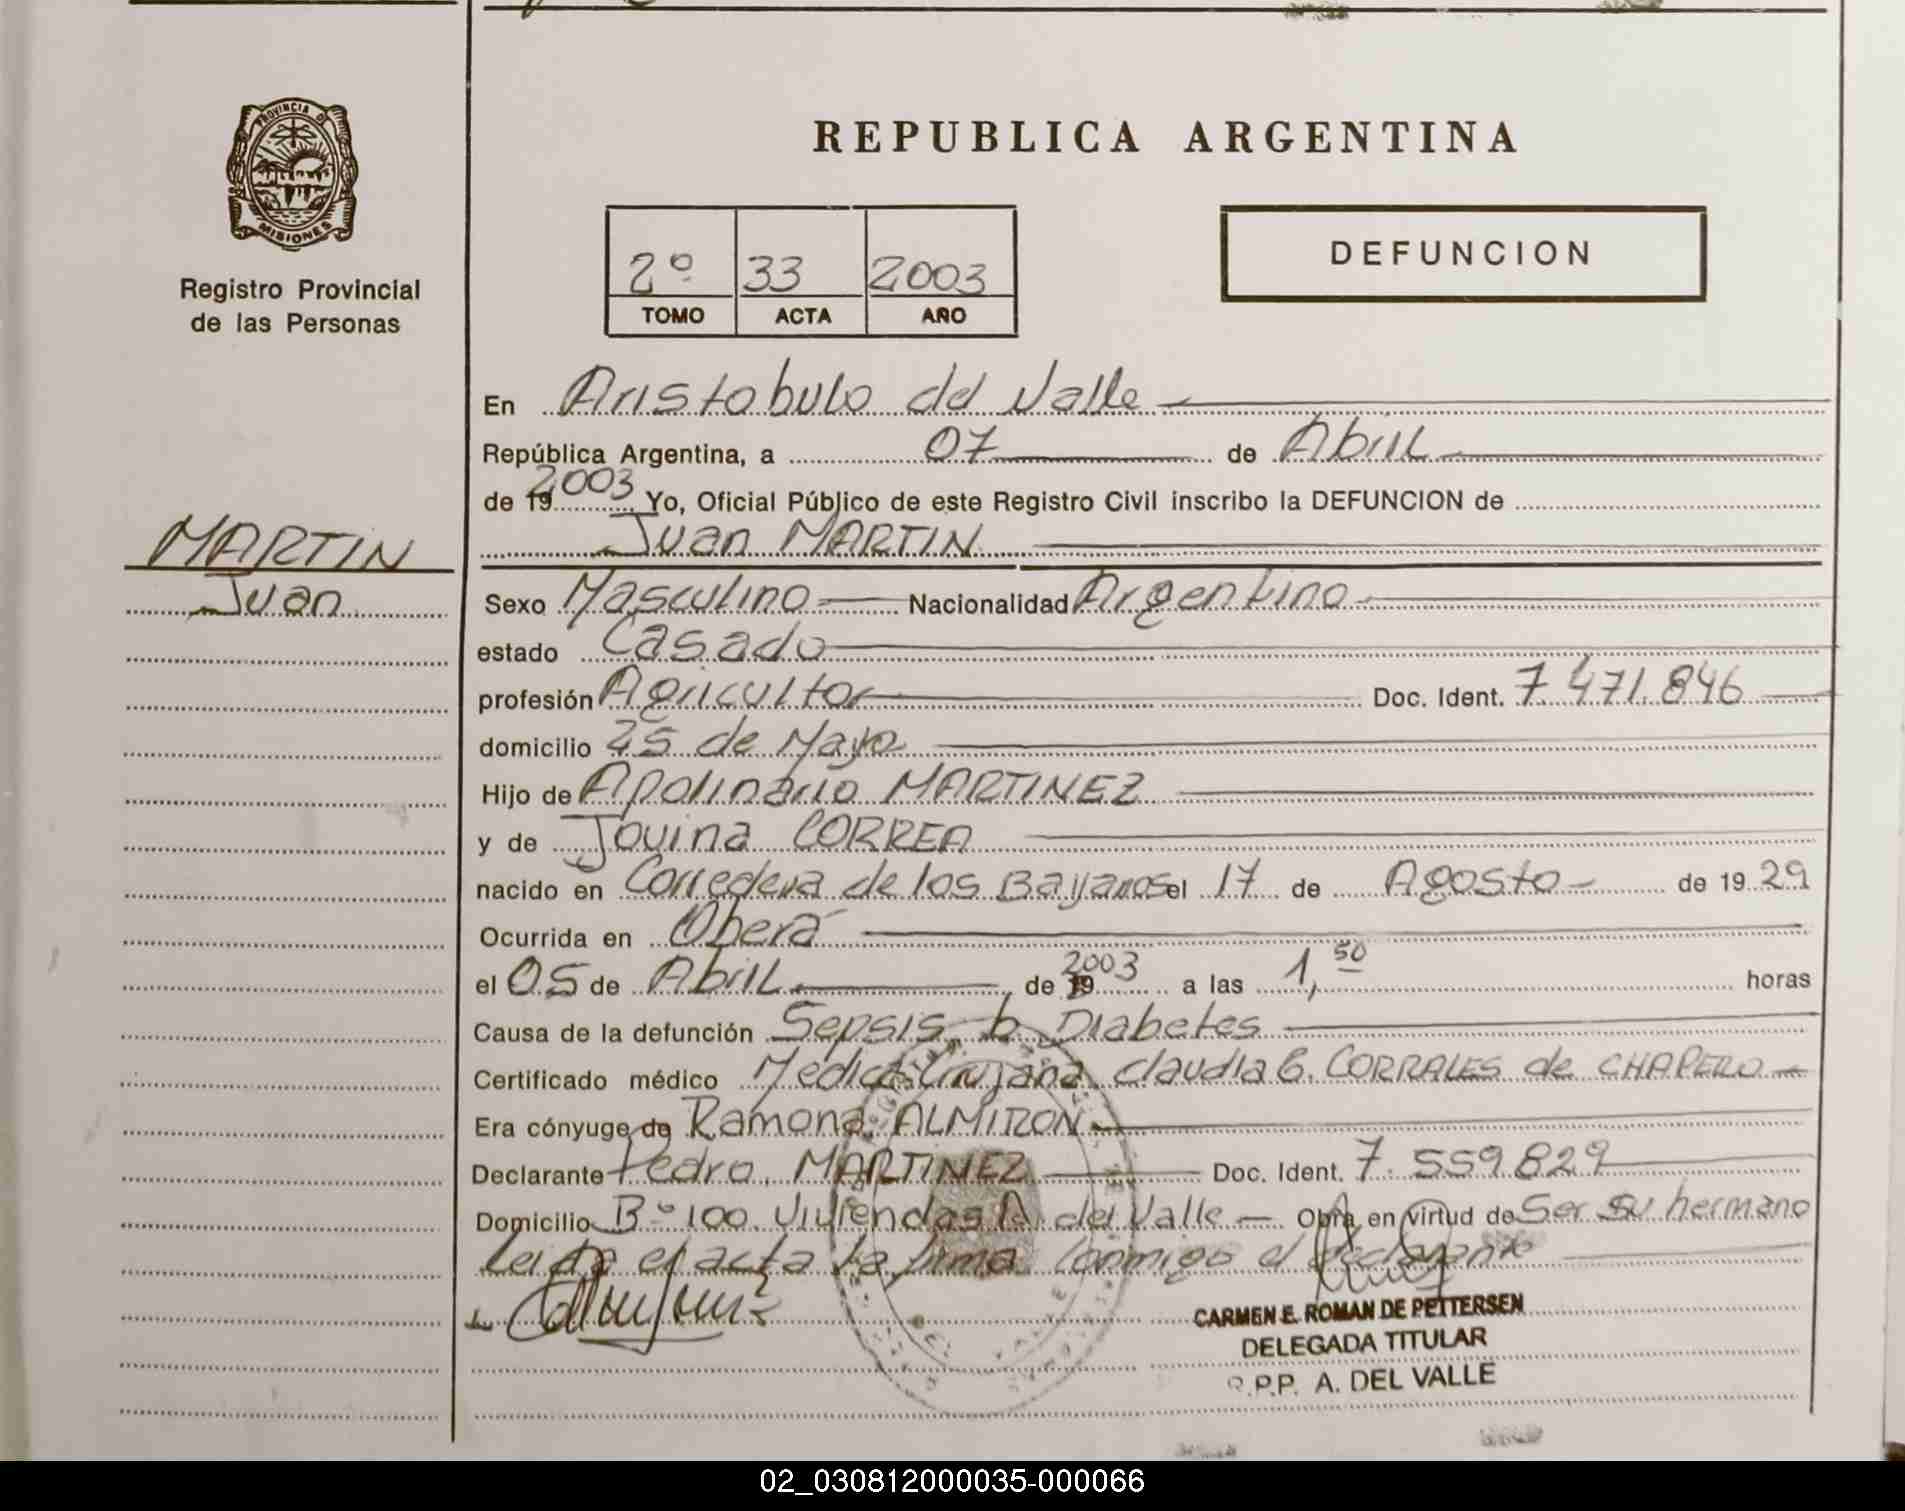 PROVINCIA DE
MISIONES
Registro Provincial
de las Personas
REPUBLICA ARGENTINA
2º 33 2003
TOMO ACTA AÑO
DEFUNCION
En Aristobulo del Valle
República Argentina, a 07 de Abril
de 19 2003 Yo, Oficial Público de este Registro Civil inscribo la DEFUNCION de
Juan MARTIN
MARTIN
Juan
Sexo Masculino Nacionalidad Argentino
estado Casado
profesión Agricultor Doc. Ident. 7.471.846
domicilio 25 de Mayo
Hijo de Apolinario MARTINEZ
y de Jovina CORREA
nacido en Corredera de los Bayanos el 17 de Agosto de 19 29
Ocurrida en Oberá
el 05 de Abril de 19 2003 a las 1,50 horas
Causa de la defunción Sepsis, b. Diabetes
Certificado médico Médica Cirujana Claudia G. CORRALES de CHAPERO
Era cónyuge de Ramona ALMIRON
Declarante Pedro MARTINEZ Doc. Ident. 7.559829
Domicilio Bº 100 Viviendas A. del Valle Obra en virtud de Ser su hermano
Leida el acta la firma conmigo el declarante
CARMEN E. ROMAN DE PETTERSEN
DELEGADA TITULAR
R.P.P. A. DEL VALLE
02_030812000035-000066